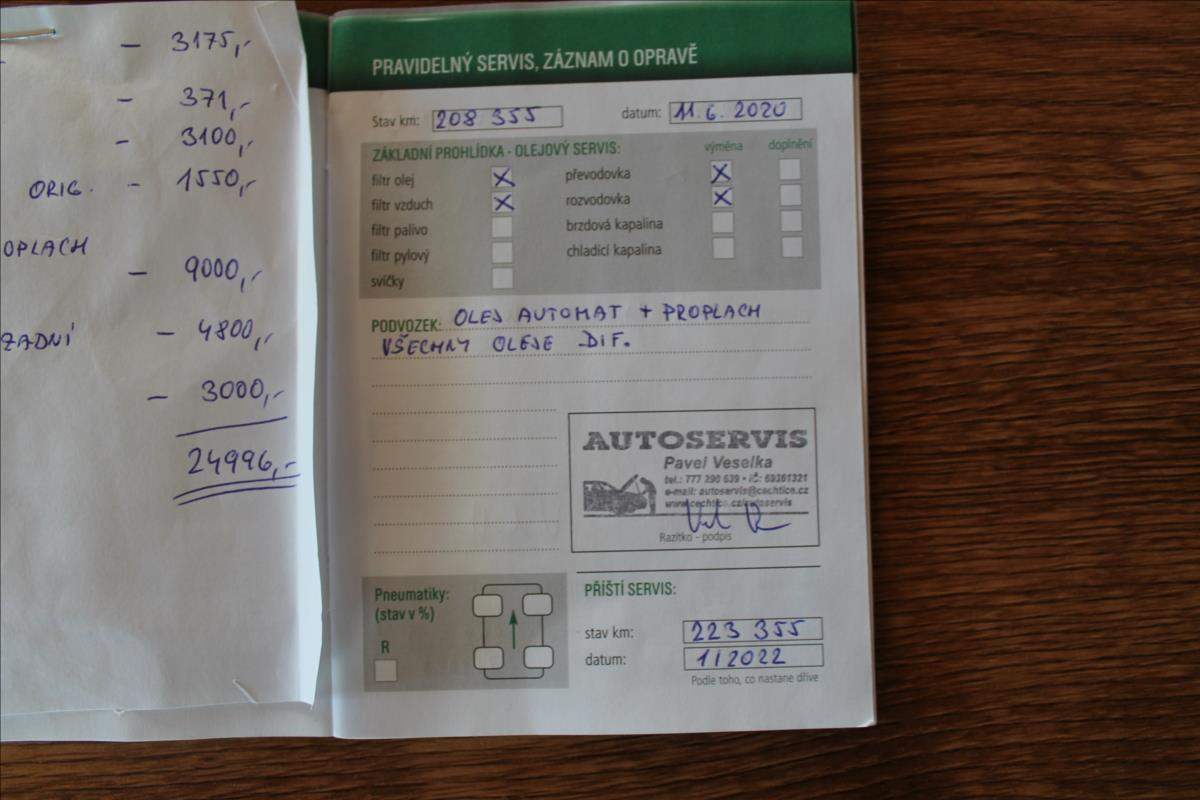 - 3175,-
- 371,-
- 3100,-
ORIG. - 1550,-
OPLACH
- 9000,-
ZADNÍ - 4800,-
- 3000,-
24996,-
PRAVIDELNÝ SERVIS, ZÁZNAM O OPRAVĚ
Stav km: 208 355 datum: 11.6.2020
ZÁKLADNÍ PROHLÍDKA - OLEJOVÝ SERVIS: výměna doplnění
filtr olej X převodovka X
filtr vzduch X rozvodovka X
filtr palivo brzdová kapalina
filtr pylový chladící kapalina
svíčky
PODVOZEK: OLEJ AUTOMAT + PROPLACH
VŠECHNY OLEJE DIF.
AUTOSERVIS
Pavel Veselka
tel.: 777 290 639 • IČ: 69361321
e-mail: autoservis@cechtice.cz
www.cechtice.cz/autoservis
Razítko - podpis
Pneumatiky:
(stav v %)
R
PŘÍŠTÍ SERVIS:
stav km: 223 355
datum: 1/2022
Podle toho, co nastane dříve